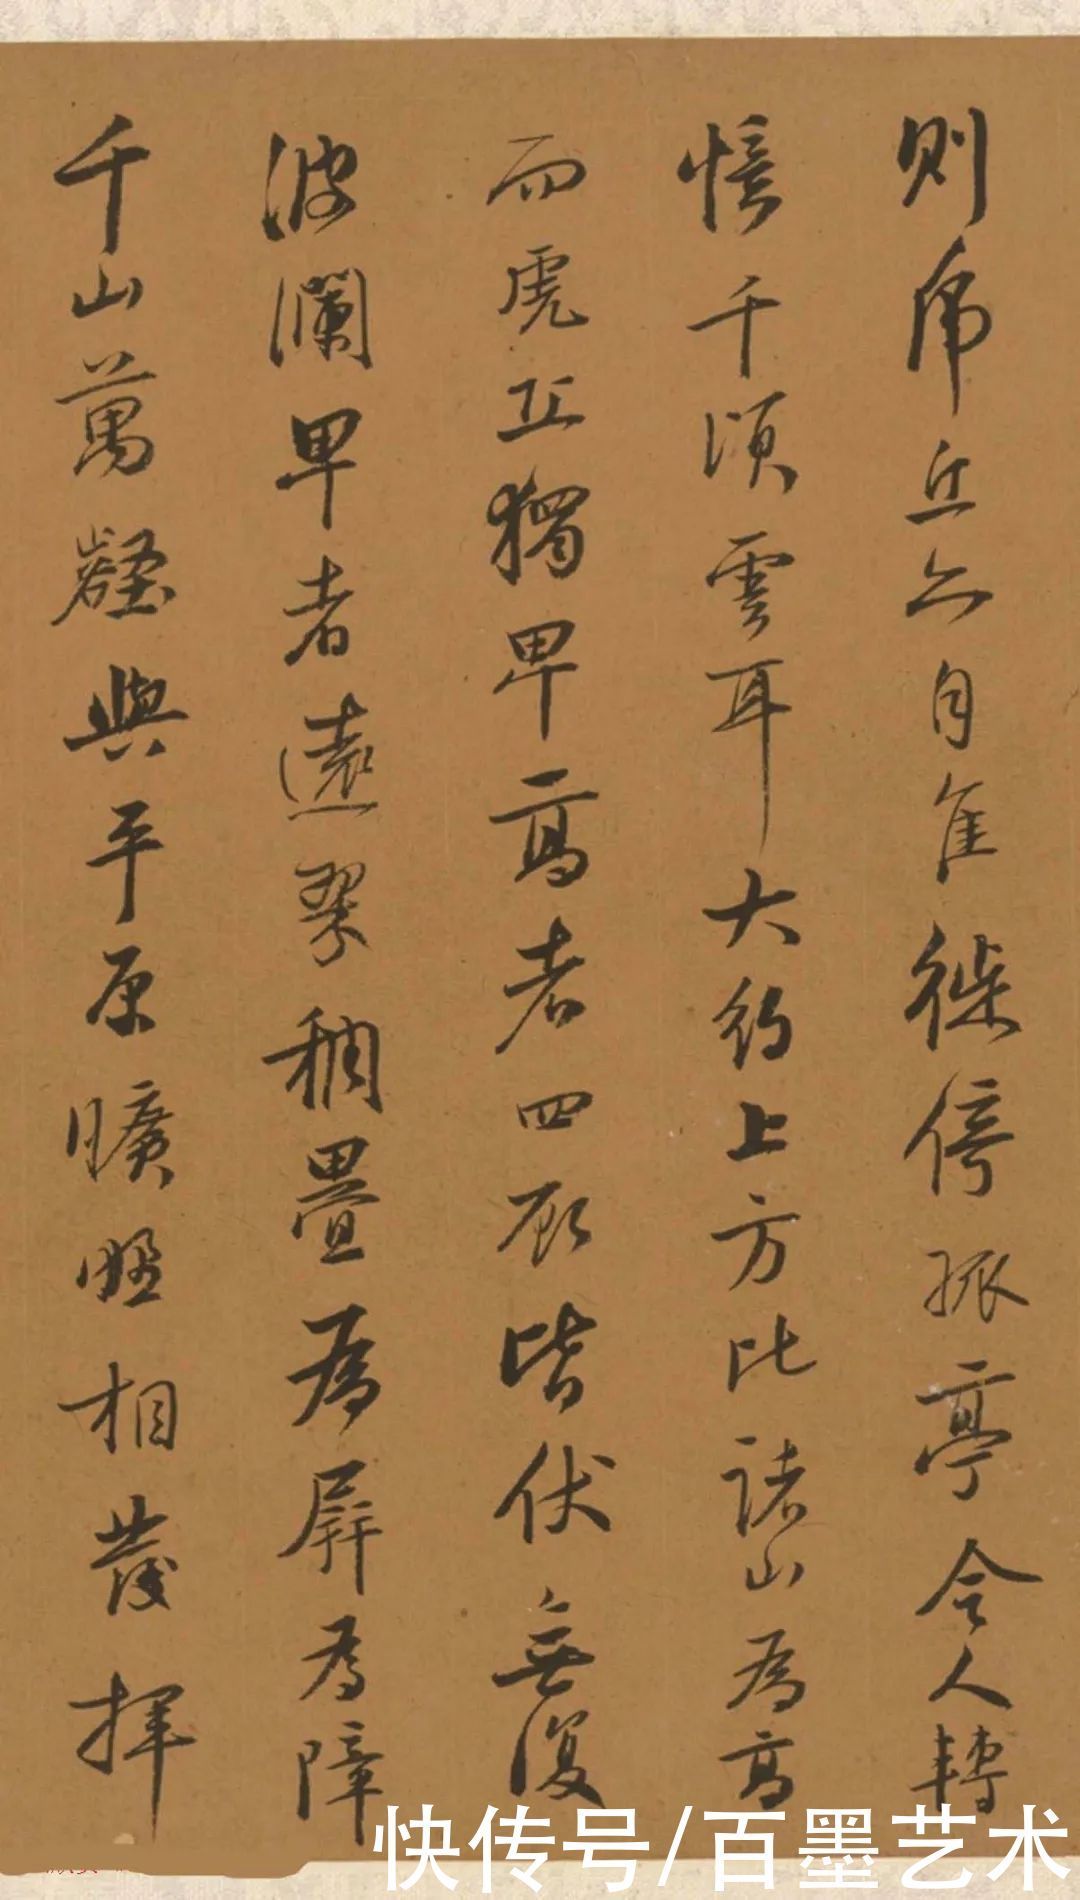 則虎丘亦自佳徙倚孤亭令人轉
憶千頃雲耳大約上方比諸山爲高
而虎丘獨卑高者四顧皆伏無復
波瀾卑者遠翠稠疊爲屏爲障
千山萬壑與平原曠野相發揮
快传号/百墨艺术